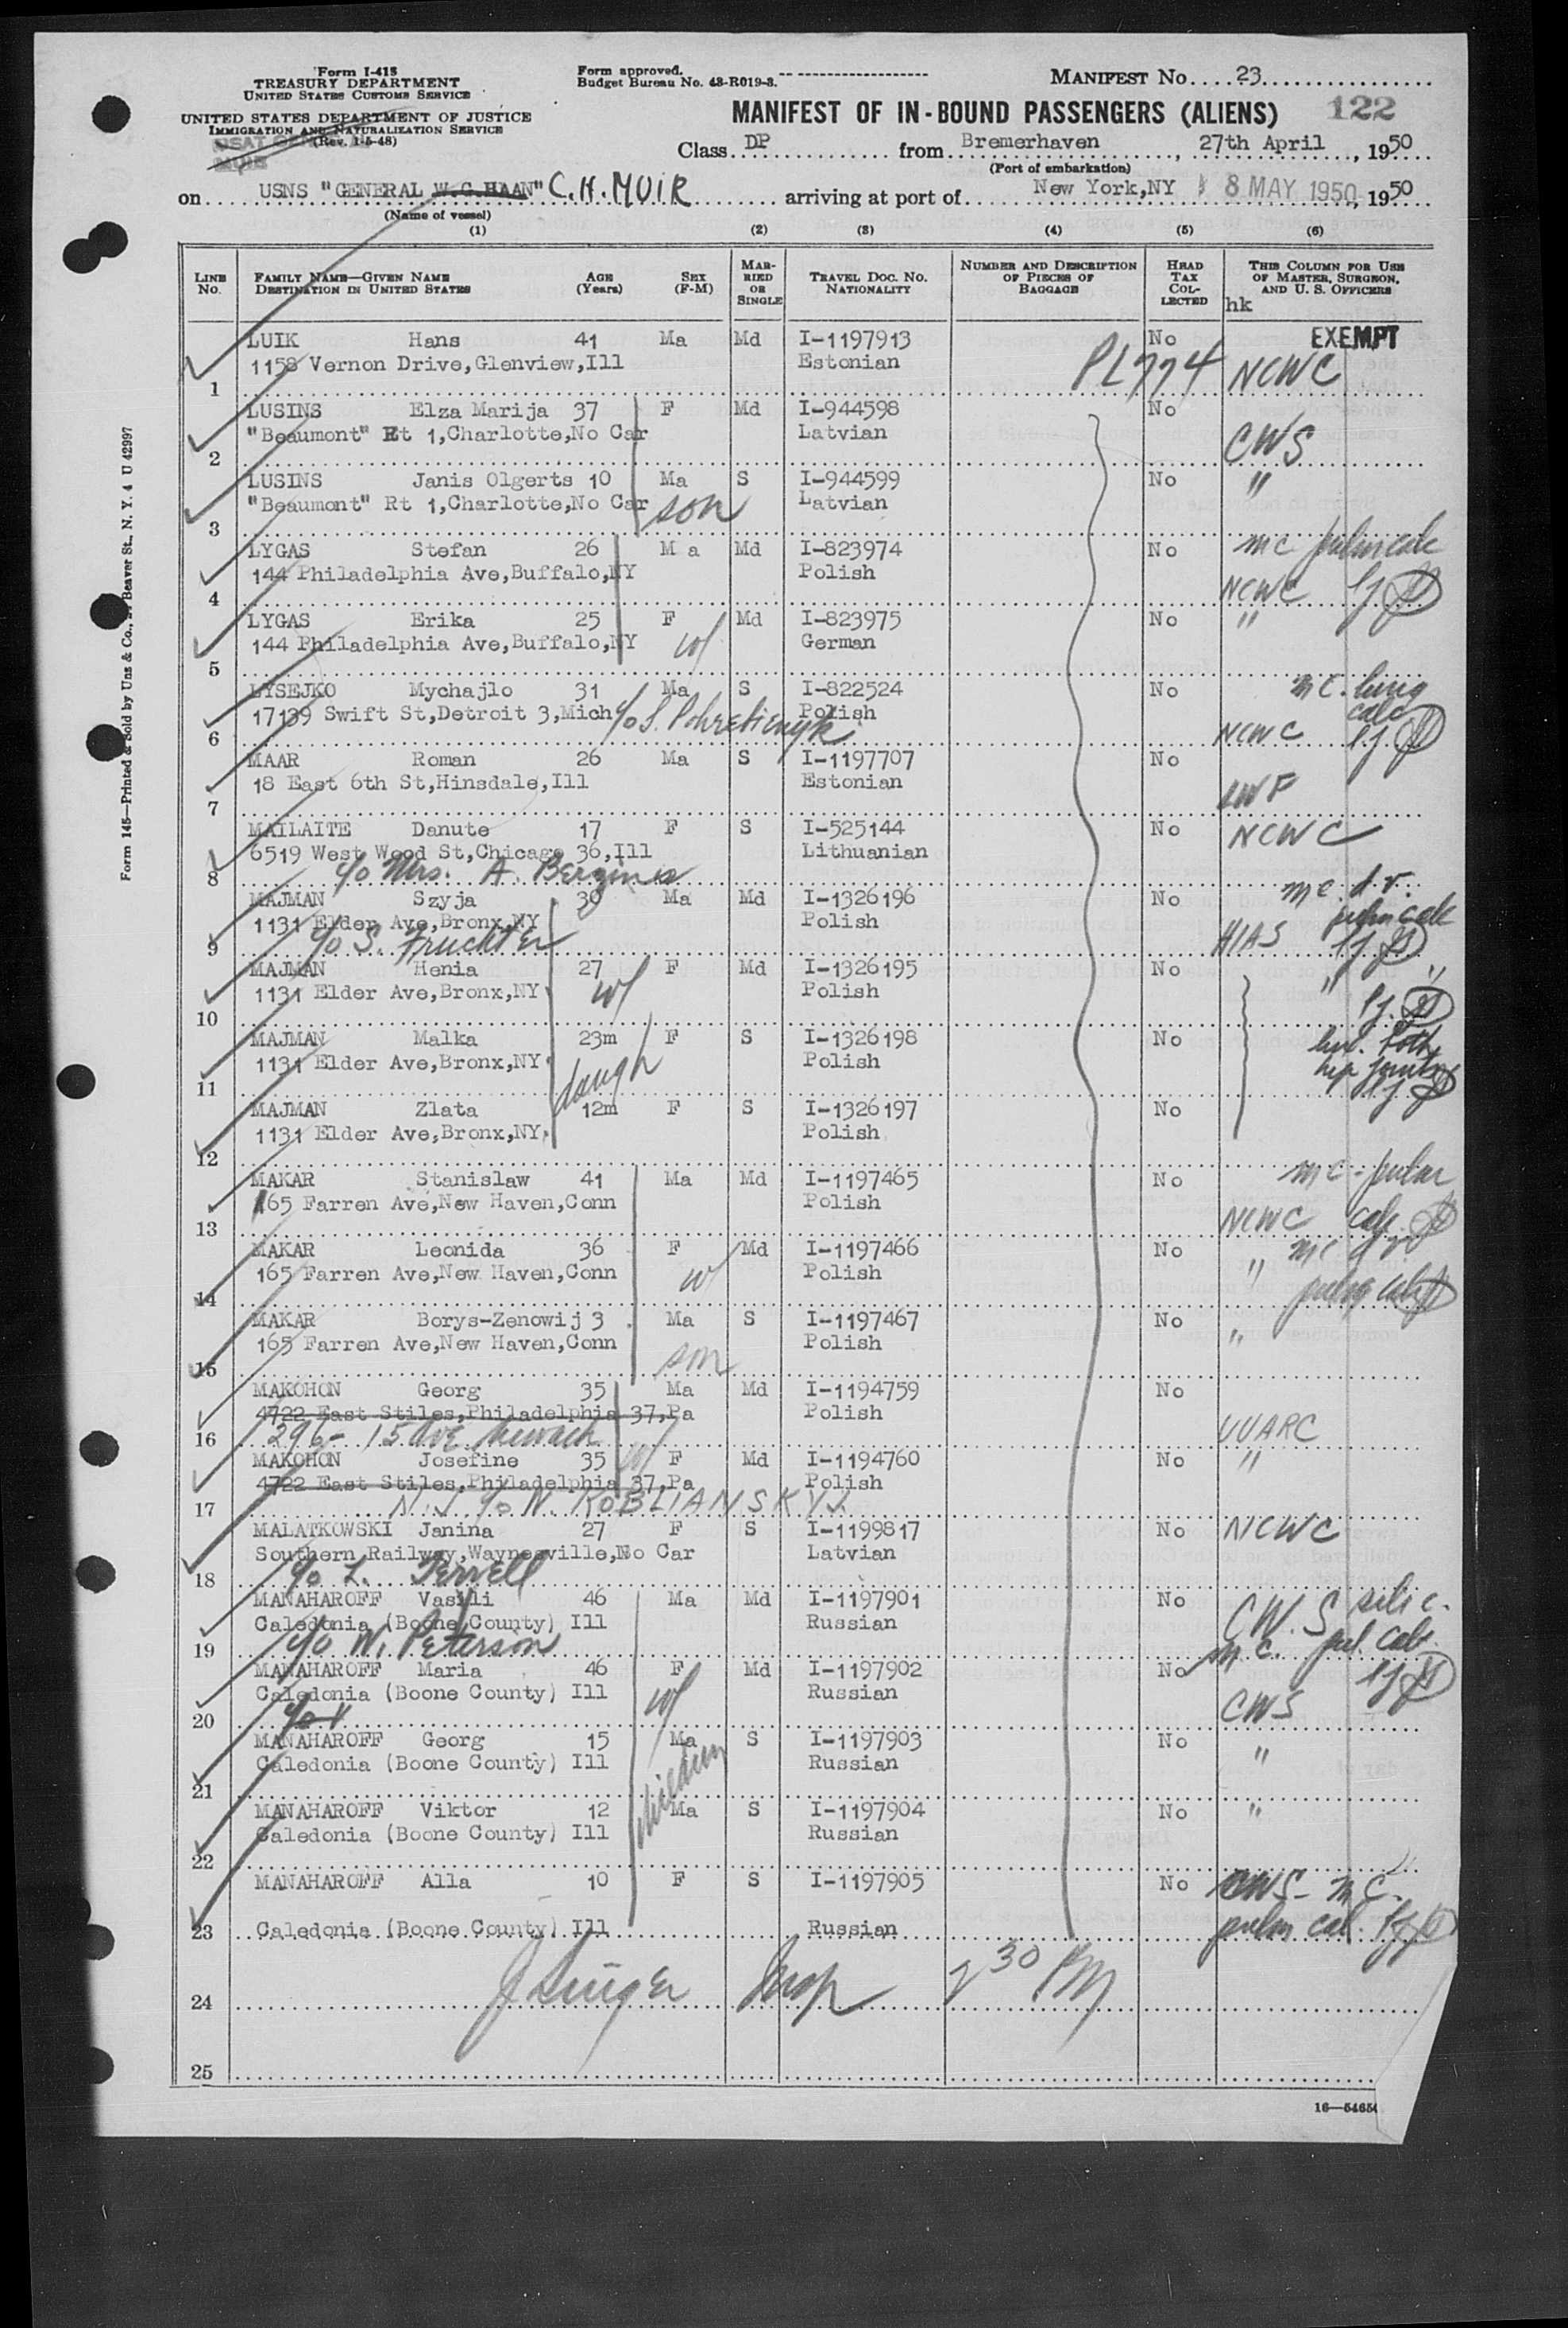 Form I-418
TREASURY DEPARTMENT
UNITED STATES CUSTOMS SERVICE
UNITED STATES DEPARTMENT OF JUSTICE
IMMIGRATION AND NATURALIZATION SERVICE
(Rev. 1-5-48)
Form approved.
Budget Bureau No. 43-R019-3.
MANIFEST No. 23
MANIFEST OF IN-BOUND PASSENGERS (ALIENS) 122
Class DP from Bremerhaven, 27th April, 1950
(Port of embarkation)
on USNS "GENERAL W.G.HAAN" C.H. MUIR arriving at port of New York,NY 8 MAY 1950, 1950
(Name of vessel)
(1) (2) (3) (4) (5) (6)
LINE NO. FAMILY NAME—GIVEN NAME DESTINATION IN UNITED STATES AGE (Years) SEX (F-M) MARRIED OR SINGLE TRAVEL DOC. NO. NATIONALITY NUMBER AND DESCRIPTION OF PIECES OF BAGGAGE HEAD TAX COLLECTED THIS COLUMN FOR USE OF MASTER, SURGEON, AND U. S. OFFICERS
hk
LUIK Hans 41 Ma Md I-1197913 No EXEMPT
1158 Vernon Drive,Glenview,Ill Estonian PL774 NCWC
1
LUSINS Elza Marija 37 F Md I-944598 No
"Beaumont" Rt 1,Charlotte,No Car Latvian CWS
2
LUSINS Janis Olgerts 10 Ma S I-944599 No "
"Beaumont" Rt 1,Charlotte,No Car son Latvian
3
LYGAS Stefan 26 M a Md I-823974 No mc pulm calc
144 Philadelphia Ave,Buffalo,NY Polish NCWC
4
LYGAS Erika 25 F Md I-823975 No "
144 Philadelphia Ave,Buffalo,NY wf German
5
LYSEJKO Mychajlo 31 Ma S I-822524 No mc. lung calc
17139 Swift St,Detroit 3,Mich c/o S. Polish NCWC
6
MAAR Roman 26 Ma S I-1197707 No
18 East 6th St,Hinsdale,Ill Estonian LWF
7
MAILAITE Danute 17 F S I-525144 No NCWC
6519 West Wood St,Chicago 36,Ill Lithuanian
8 c/o Mrs. A. Berzines
MAJMAN Szyja 30 Ma Md I-1326196 No mc. d.v. pulm calc
1131 Elder Ave,Bronx,NY Polish HIAS
9 c/o S. Fruchter
MAJMAN Henia 27 F Md I-1326195 No " "
1131 Elder Ave,Bronx,NY wf Polish
10
MAJMAN Malka 23m F S I-1326198 No both hip joints
1131 Elder Ave,Bronx,NY daugh Polish
11
MAJMAN Zlata 12m F S I-1326197 No
1131 Elder Ave,Bronx,NY Polish
12
MAKAR Stanislaw 41 Ma Md I-1197465 No mc - pulm
165 Farren Ave,New Haven,Conn Polish NCWC calc.
13
MAKAR Leonida 36 F Md I-1197466 No " mc
165 Farren Ave,New Haven,Conn w Polish
14
MAKAR Borys-Zenowij 3 Ma S I-1197467 No "
165 Farren Ave,New Haven,Conn son Polish
15
MAKOHON Georg 35 Ma Md I-1194759 No
4722 East Stiles,Philadelphia 37,Pa Polish UUARC
16 296- 15 Ave Newark
MAKOHON Josefine 35 wf F Md I-1194760 No "
4722 East Stiles,Philadelphia 37,Pa Polish
17 N.J. c/o N. KOBLIANSKYJ
MALATKOWSKI Janina 27 F S I-1199817 No NCWC
Southern Railway,Waynesville,No Car Latvian
18 c/o L. Terrell
MANAHAROFF Vasili 46 Ma Md I-1197901 No CWS silic.
Caledonia (Boone County) Ill Russian mc. pul. calc.
19 c/o W. Peterson
MANAHAROFF Maria 46 F Md I-1197902 No
Caledonia (Boone County) Ill wf Russian CWS
20 c/o
MANAHAROFF Georg 15 Ma S I-1197903 No "
Caledonia (Boone County) Ill children Russian
21
MANAHAROFF Viktor 12 Ma S I-1197904 No "
Caledonia (Boone County) Ill Russian
22
MANAHAROFF Alla 10 F S I-1197905 No CWS - mc.
23 Caledonia (Boone County) Ill Russian pulm cal.
24 J Singer Insp 2 30 PM
25
16—5465
Form 145—Printed & Sold by Unz & Co. Beaver St., N. Y. 4 U 42997